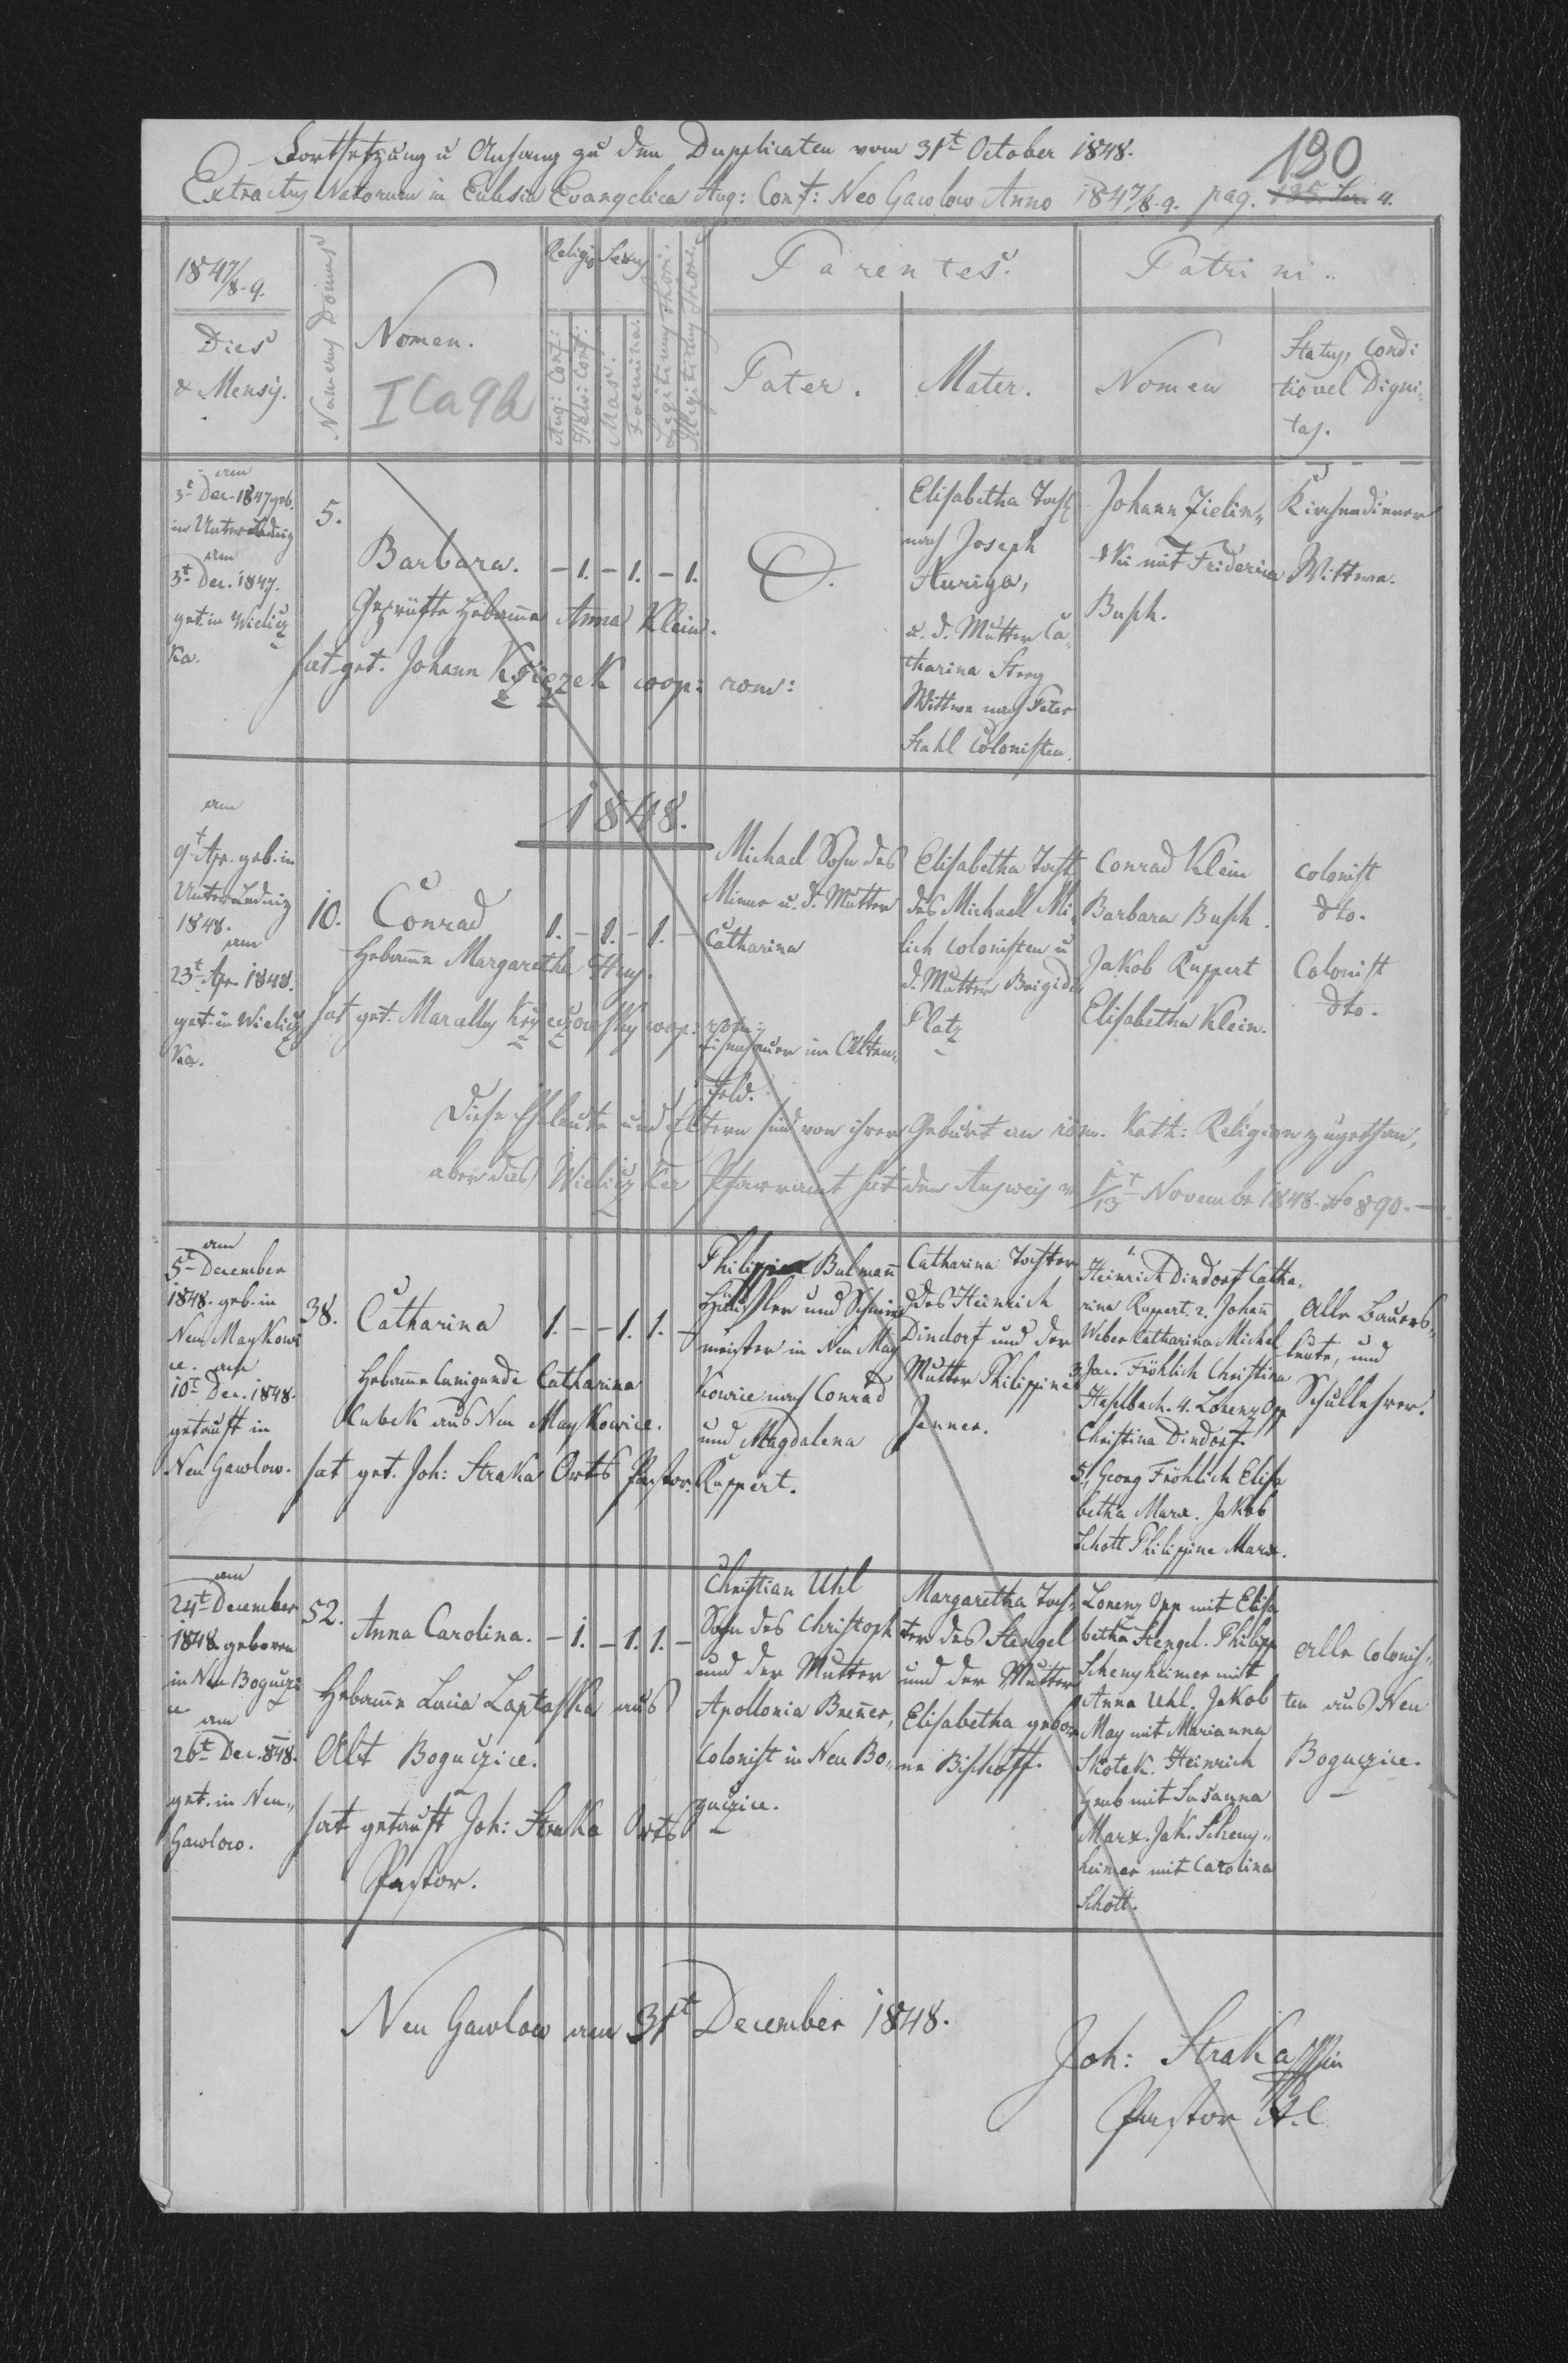 Fortsetzung u Anhang zu den Dupplicaten vom 31t October 1848.
190
Extractus Natorum in Eclesia Evangelica Aug: Conf: Neo Gawlow Anno 1847/8-9. pag. 4.
1847/8-9.
Dies
& Mensis.
Numerus Domus
Nomen.
ICa9b
Religio
Aug: Conf:
Helv: Conf:
Sexus
Mas.
Foemina.
Legitimus thori.
Illegitimus thori.
Parentes.
Pater.
Mater.
Patrini.
Nomen
Status, Condi
tio vel Digni,
tas.
am
3t Dec. 1847 geb.
in Unter Lednig
am
3t Dec. 1847.
get. in Wielicz
ka.
5.
Barbara. - 1. - 1. - 1.
Geprüfte Hebamme Anna Klein.
hat get. Johann Księzek coop: rom:
Elisabetha Tocht
nach Joseph
Kuriga,
u. d. Mutter Ca
tharina
Wittwe nach Peter
Stahl Colonisten.
Johann Zielin,,
ski mit Friderica
Busch.
Kirchendiener
Wittwe.
1848.
am
9t Apr. geb. in
Unter Lednig
1848.
am
23t Apr. 1848.
get. in Wielicz
ka.
10.
Conrad 1. - 1. - 1. -
Hebamme Margaretha
hat get. Marcellus coop: rom:
Michael Sohn des
u. d. Mutter
Catharina
im Alten,,
feld.
Elisabetha Tocht
des Michael Mi,
lich Colonisten u
d. Mutter Brigida
Platz
Conrad Klein
Barbara Busch.
Jakob Ruppert
Elisabetha Klein.
Colonist
dto.
Colonist
dto.
Diese Eheleute und Eltern sind von ihrer Geburt an röm. Kath: Religion zugethan,
aber das Wieliczker Pfarramt hat den Ausweis v 13t November 1848. No 890. -
am
5t December
1848. geb. in
Neu Maykowi
ce. am
10t Dec. 1848.
getauft in
Neu Gawlow.
38.
Catharina 1. - - 1. 1. -
Hebamme Cunigunde Catharina
Kubek aus Neu Maykowice.
hat get. Joh: Straka Orts Pastor.
Philipp Bulmann
Häusler und Schmied
meister in Neu May
kowice nach Conrad
und Magdalena
Ruppert.
Catharina Tochter
des Heinrich
Dindorf und der
Mutter Philippine
Jenner.
1. Heinrich Dindorf Catha,
rina Ruppert. 2. Johann
Weber Catharina Michel
3. Jac. Fröhlich Christina
Haselbach. 4. Lorenz Opp
Christina Dindorf.
5., Georg Fröhlich Elisa
betha Marx. Jakob
Schott Philippine Marx.
Alle Bauers,,
leute, und
Schullehrer.
am
24t December
1848 geboren
in Neu Boguczi
ce
am
26t Dec. 848.
get. in Neu,,
Gawlow.
52.
Anna Carolina. - 1. - 1. 1. -
Hebamme Lucia Laptaska aus
Alt Boguczice.
hat getauft Joh: Straka Orts
Pastor.
Christian Uhl
Sohn des Christoph
und der Mutter
Apollonia Brenner,
Colonist in Neu Bo,,
guczice.
Margaretha Toch,
ter des Stengel
und der Mutter
Elisabetha gebor
ne Bischoff.
Lorenz Opp mit Elisa
betha Stengel. Philipp
Schenzheimer mit
Anna Uhl. Jakob
May mit Marianna
Skotek. Heinrich
Grub mit Susanna
Marx. Jak. Schenz,,
heimer mit Carolina
Schott.
Alle Colonis,,
ten aus Neu
Boguczice.
Neu Gawlow am 31t December 1848.
Joh: Straka
Pastor A.C